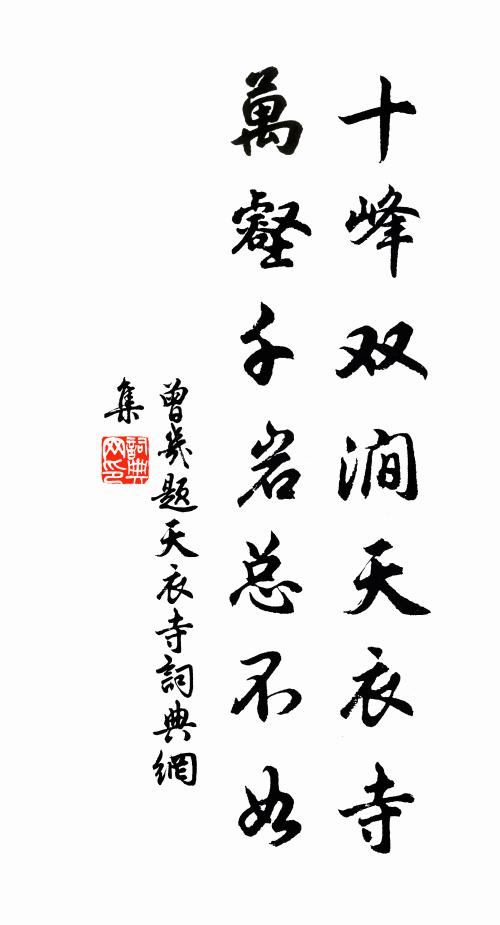 十峰双澗天衣寺
萬壑千岩总不如
曾幾题天衣寺詞典網
集
詞典网印